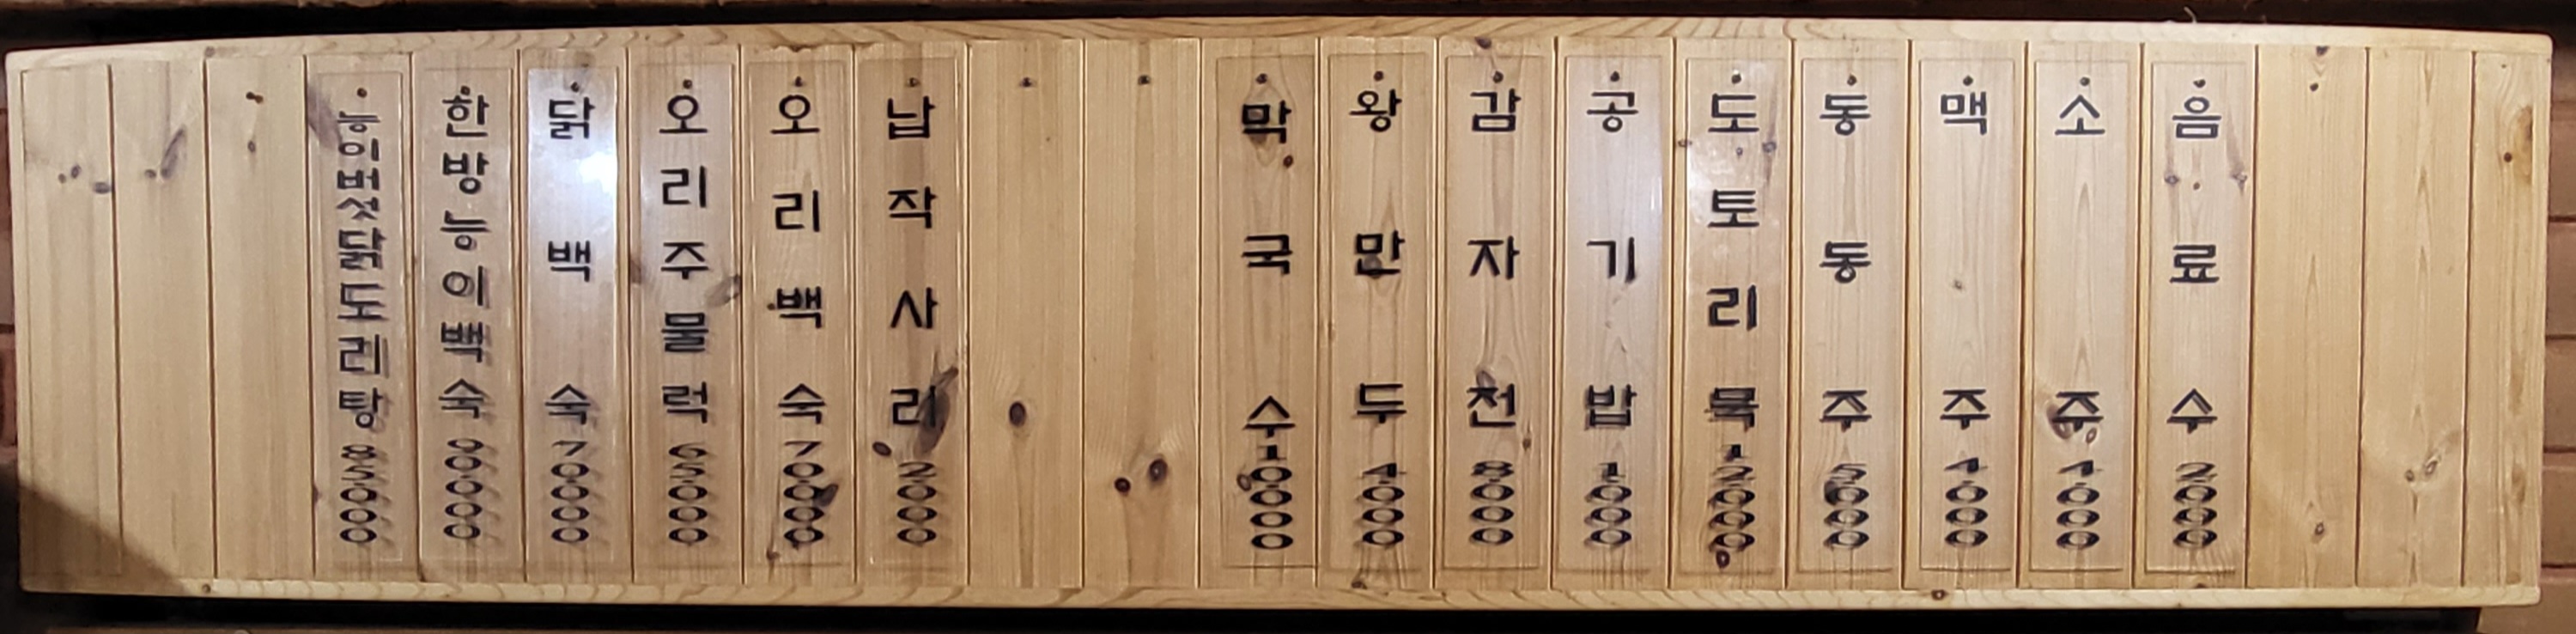 능이버섯닭도리탕 85000
한방능이백숙 90000
닭백숙 70000
오리주물럭 65000
오리백숙 70000
납작사리 2000
막국수 10000
왕만두 4000
감자전 8000
공기밥 1000
도토리묵 12000
동동주 5000
맥주 4000
소주 4000
음료수 2000